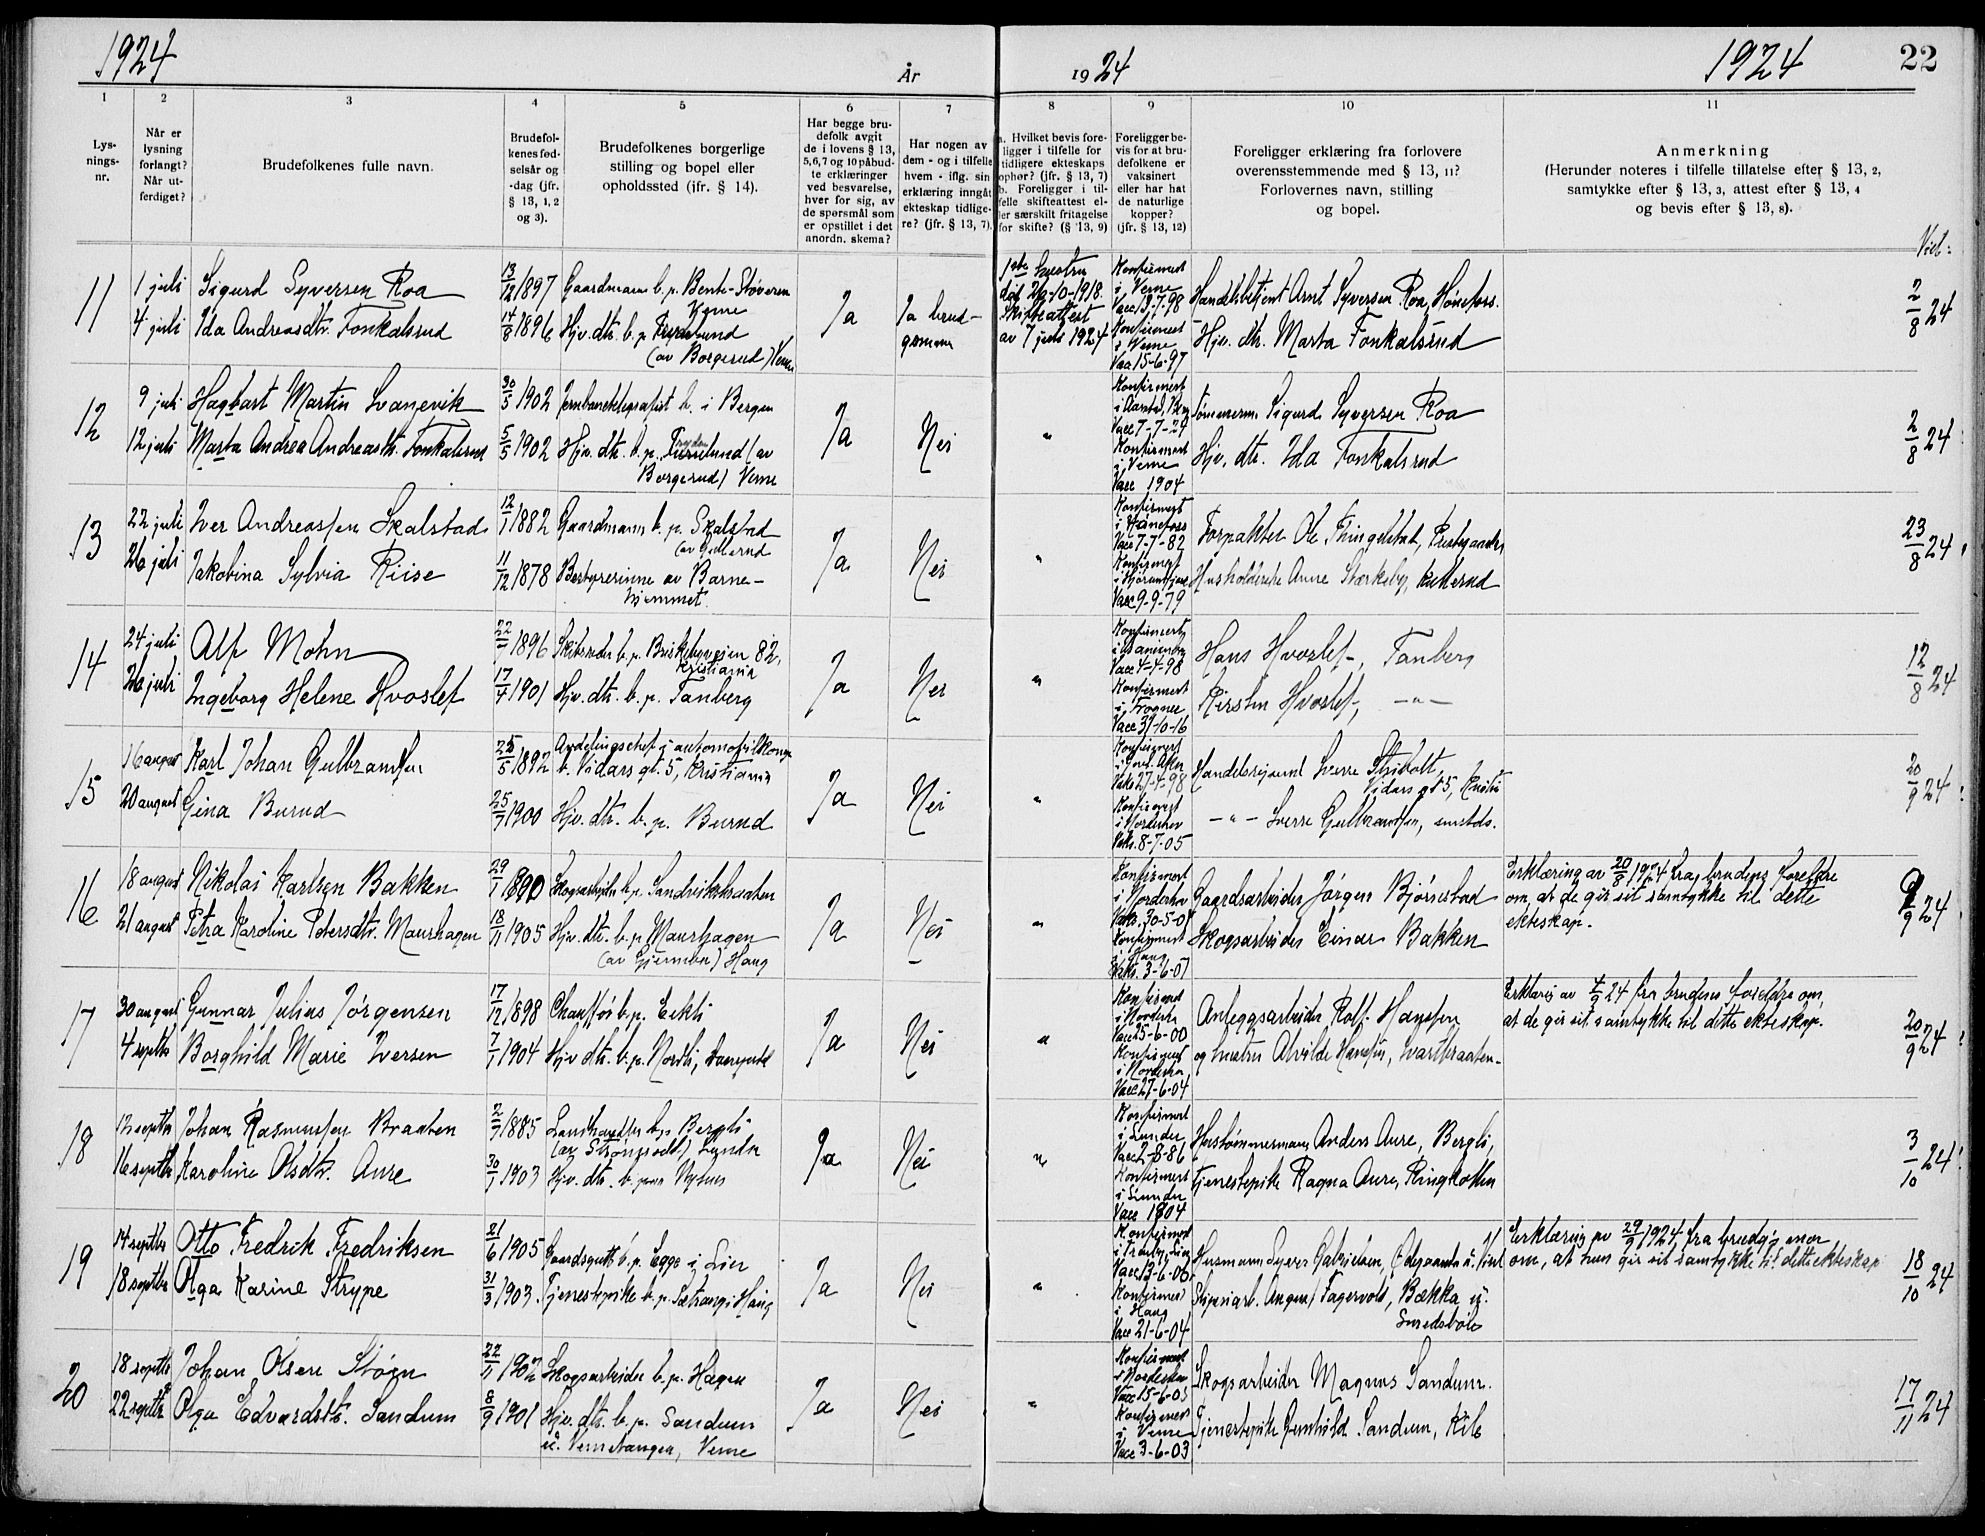 1924
År
1924
1924
22
1
2
3
4
5
6
7
8
9
10
11
Lys-
nings-
nr.
Når er
lysning
forlangt?
Når ut-
ferdiget?
Brudefolkenes fulle navn.
Brudefol-
kenes fød-
selsår og
-dag (jfr.
§ 13, 1, 2
og 3).
Brudefolkenes borgerlige
stilling og bopel eller
opholdssted (jfr. § 14).
Har begge bru-
defolk avgit
de i lovens § 13,
5,6,7 og 10 påbud-
te erklæringer
ved besvarelse,
hver for sig, av
de spørsmål som
er opstillet i det
anordn. skema?
Har nogen av
dem - og i tilfelle
hvem - iflg. sin
erklæring inngåt
ekteskap tidlige-
re? (jfr. § 13, 7).
a. Hvilket bevis fore-
ligger i tilfelle for
tidligere ekteskaps
ophør? (jfr. § 13, 7)
b. Foreligger i til-
felle skifteattest el-
ler særskilt fritagelse
for skifte? (§ 13, 9)
Foreligger be-
vis for at bru-
defolkene er
vaksinert
eller har hat
de naturlige
kopper?
(jfr. § 13, 12)
Foreligger erklæring fra forlovere
overensstemmende med § 13, 11?
Forlovernes navn, stilling
og bopel.
Anmerkning
(Herunder noteres i tilfelle tillatelse efter § 13, 2,
samtykke efter § 13, 3, attest efter § 13, 4
og bevis efter § 13, 8).
Viet:
11
1 juli
4 juli
Sigurd Syversen Roa
Ida Andreasdtr. Fonkalsrud
13/12 1897
14/8 1896
Gaardmann b. p. Bente-Støveren
Hjv. dtr. b. p.
(av Borgerud) Verne
Ja
Ja brud-
gommen
1ste hustru
død 26-10-1918.
Skifteattest
av 7 juli 1924
Konfirmert
i Verne
Vacc 13-7-98
Konfirmert
i Verne
Vac 15-6-97
Handelsbetjent Arnt Syversen Roa, Hønefoss.
Hjv. dtr. Marta Fonkalsrud
2/8 24
12
9 juli
12 juli
Hagbart Martin Svanevik
Marta Andrea Andreasdtr. Fonkalsrud
30/5 1902
5/5 1902
Jernbanetelegrafist b. i Bergen
Hjv. dtr. b. p. (av
Borgerud) Verne
Ja
Nei
"
Konfirmert
Vacc 7-7-24
Konfirmert
i Verne
Vacc 1904
Tømmerm. Sigurd Syversen Roa
Hjv. dtr. Ida Fonkalsrud
2/8 24
13
22 juli
26 juli
Iver Andreassen Skalstad
Jakobina Sylvia Riise
12/1 1882
11/12 1878
Gaardmann b. p. Skalstad
Bestyrerinne av Barne-
hjemmet.
Ja
Nei
"
Konfirmert
i Hønefoss
Vacc 7-7-82
Konfirmert
Vacc 9-9-79
Forpakter Ole Thingelstad, Prestegaarden
Husholderske Anne Stærkeby,
23/8 24
14
24 juli
26 juli
Alf Mohn
Ingeborg Helene Hvoslef
22/7 1896
17/4 1901
Skibsreder b. p. Briskebyveien 82,
Kristiania
Hjv. dtr. b. p. Tanberg
Ja
Nei
"
Konfirmert
Vacc 4-4-98
Konfirmert
i Frogner
Vacc 31-10-16
Hans Hvoslef, Tanberg
Kirsten Hvoslef, -"-
12/8 24
15
16 august
20 august
Karl Johan Gulbrandsen
Gina Burud
25/5 1892
25/7 1900
Avdelingschef i automobilkomp.
b. Vidars gt. 5, Kristiania
Hjv. dtr. b. p. Burud
Ja
Nei
"
Konfirmert
Vaks 27-4-98
Konfirmert
i Norderhov
Vaks. 8-7-05
Vidars gt 5, Kristia
-"- Sverre Gulbrandsen, smstds.
20/9 24
16
18 august
21 august
Nikolai Karlsen Bakken
Petra Karoline Petersdtr. Maurhagen
29/1 1890
18/11 1905
Skogsarbeider b. p. Sandvikbraaten
Hjv. dtr. b. p. Maurhagen
(av Gjermbu) Haug
Ja
Nei
"
Konfirmert
i Norderhov
Vaks. 30-5-01
Konfirmert
i Haug
Vaks. 3-6-07
Gaardsarbeider Jørgen Bjørnstad
Skogsarbeider Einar Bakken
Erklæring av 20/8 1924 fra brudens foreldre
om, at de gir sit samtykke til dette
ekteskap.
9/9 24
17
30 august
4 septbr
Gunnar Julius Jørgensen
Borghild Marie Iversen
17/12 1898
7/1 1904
Chauffør b. p. Eikli
Hjv. dtr. b. p. Nordli,
Ja
Nei
"
Konfirmert
i Norderhov
Vacc 25-6-00
Konfirmert
i Norderhov
Vacc 27-6-04
Anleggsarbeider Rolf Hansen
og hustru Alvilde Hansen, Svartbraaten
Erklæring av 4/9 24 fra brudens foreldre om,
at de gir sit samtykke til dette ekteskap.
20/9 24
18
12 septbr
16 septbr
Johan Rasmussen Braaten
Karoline Olsdtr. Aure
2/7 1885
30/1 1903
Landhandler b. p. Bergli
Lunder
Hjv. dtr. b. paa Nyhus
Ja
Nei
"
Konfirmert
i Lunder
Vacc 2-8-86
Konfirmert
i Lunder
Vacc 1804
Hustømmermann Anders Aure, Bergli,
Tjenestepike Ragna Aure, Ringkollen
3/10 24
19
14 septbr
18 septbr
Otto Fredrik Fredriksen
Olga Karine Strype
21/6 1905
31/3 1903.
Gaardsgutt b. p. Egge i Lier
Tjenestepike b. p. Sætrang i Haug
Ja
Nei
"
Konfirmert
i Tranby, Lier
Vacc 13-6-06
Konfirmert
i Haug
Vacc 21-6-04
Husmann Syver Gabrielsen,
Sliperiarb. Fagervold, Bækka u.
Smedsbøle
Erklæring av 29/9 1924 fra brudg's mor
om, at hun gir sit samtykke til dette ekteskap
18/10 24
20
18 septbr
22 septbr
Johan Olsen Støen
Olga Edvardsdtr. Sandum
22/11 1902
8/9 1901
Skogsarbeider b. p. Hagen
Hjv. dtr. b. p. Sandum
u. Vemetangen, Verne
Ja
Nei
"
Konfirmert
i Norderhov
Vacc 15-6-03
Konfirmert
i Verne
Vacc 3-6-03
Skogsarbeider Magnus Sandum.
Tjenestepike Gunhild Sandum, Kilo
17/11 24